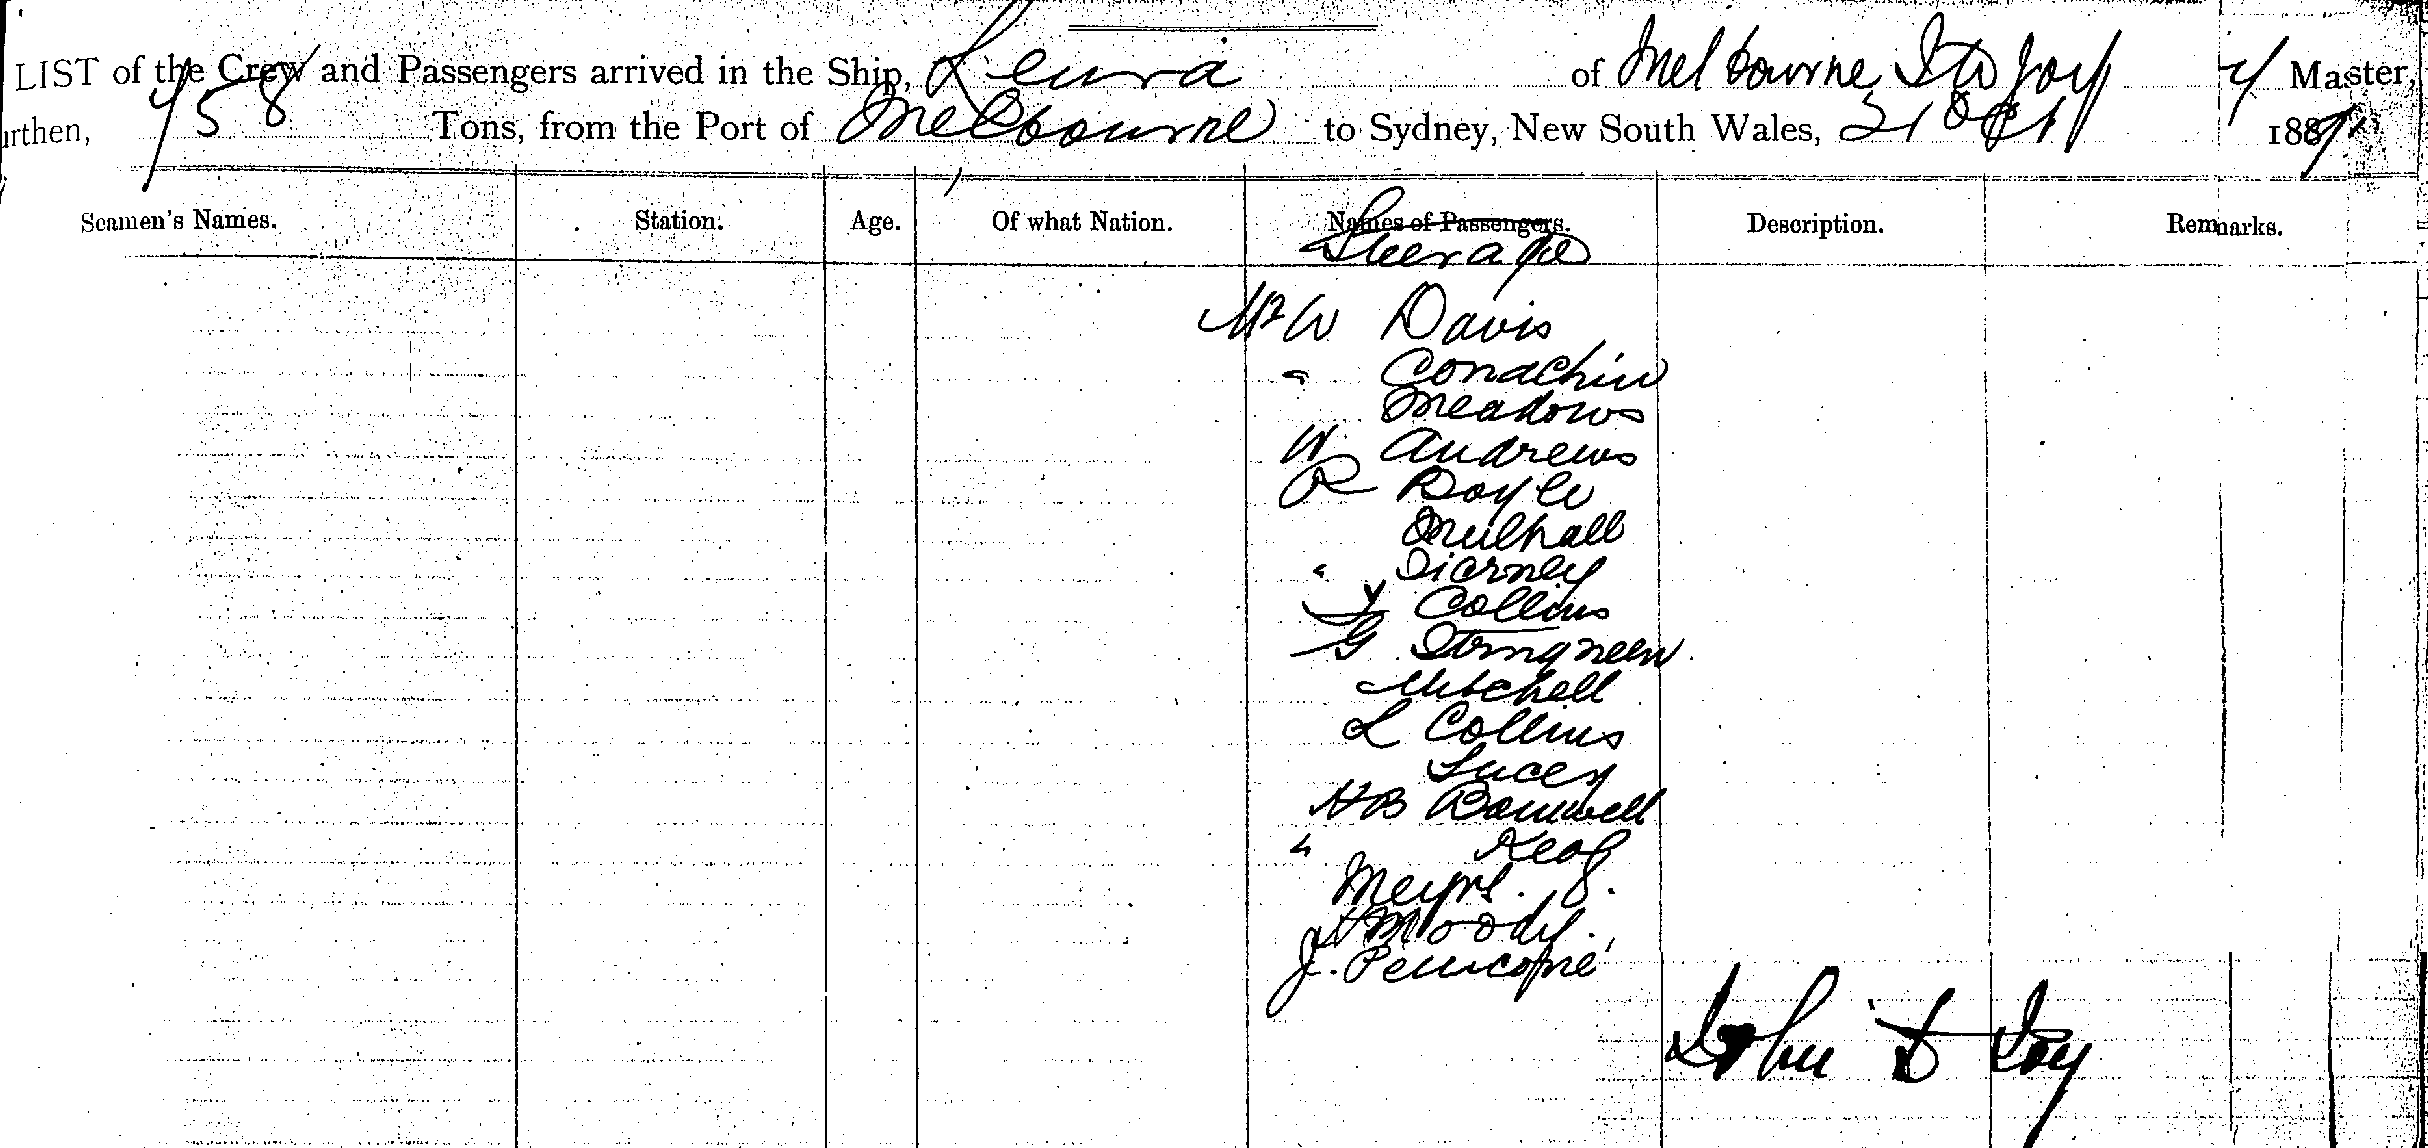 LIST of the Crew and Passengers arrived in the Ship, Leura of Melbourne Master,
urthen, 758 Tons, from the Port of Melbourne to Sydney, New South Wales, 31 Oct 1887
Seamen's Names. Station. Age. Of what Nation. Names of Passengers. Description. Remarks.
Steerage
Mr W Davis
" Conachin
Meadows
W Andrews
R Doyle
Mulhall
" Tierney
Collins
G
Mitchell
L Collins
Lucey
HB
"
Moody
J.
John Joy